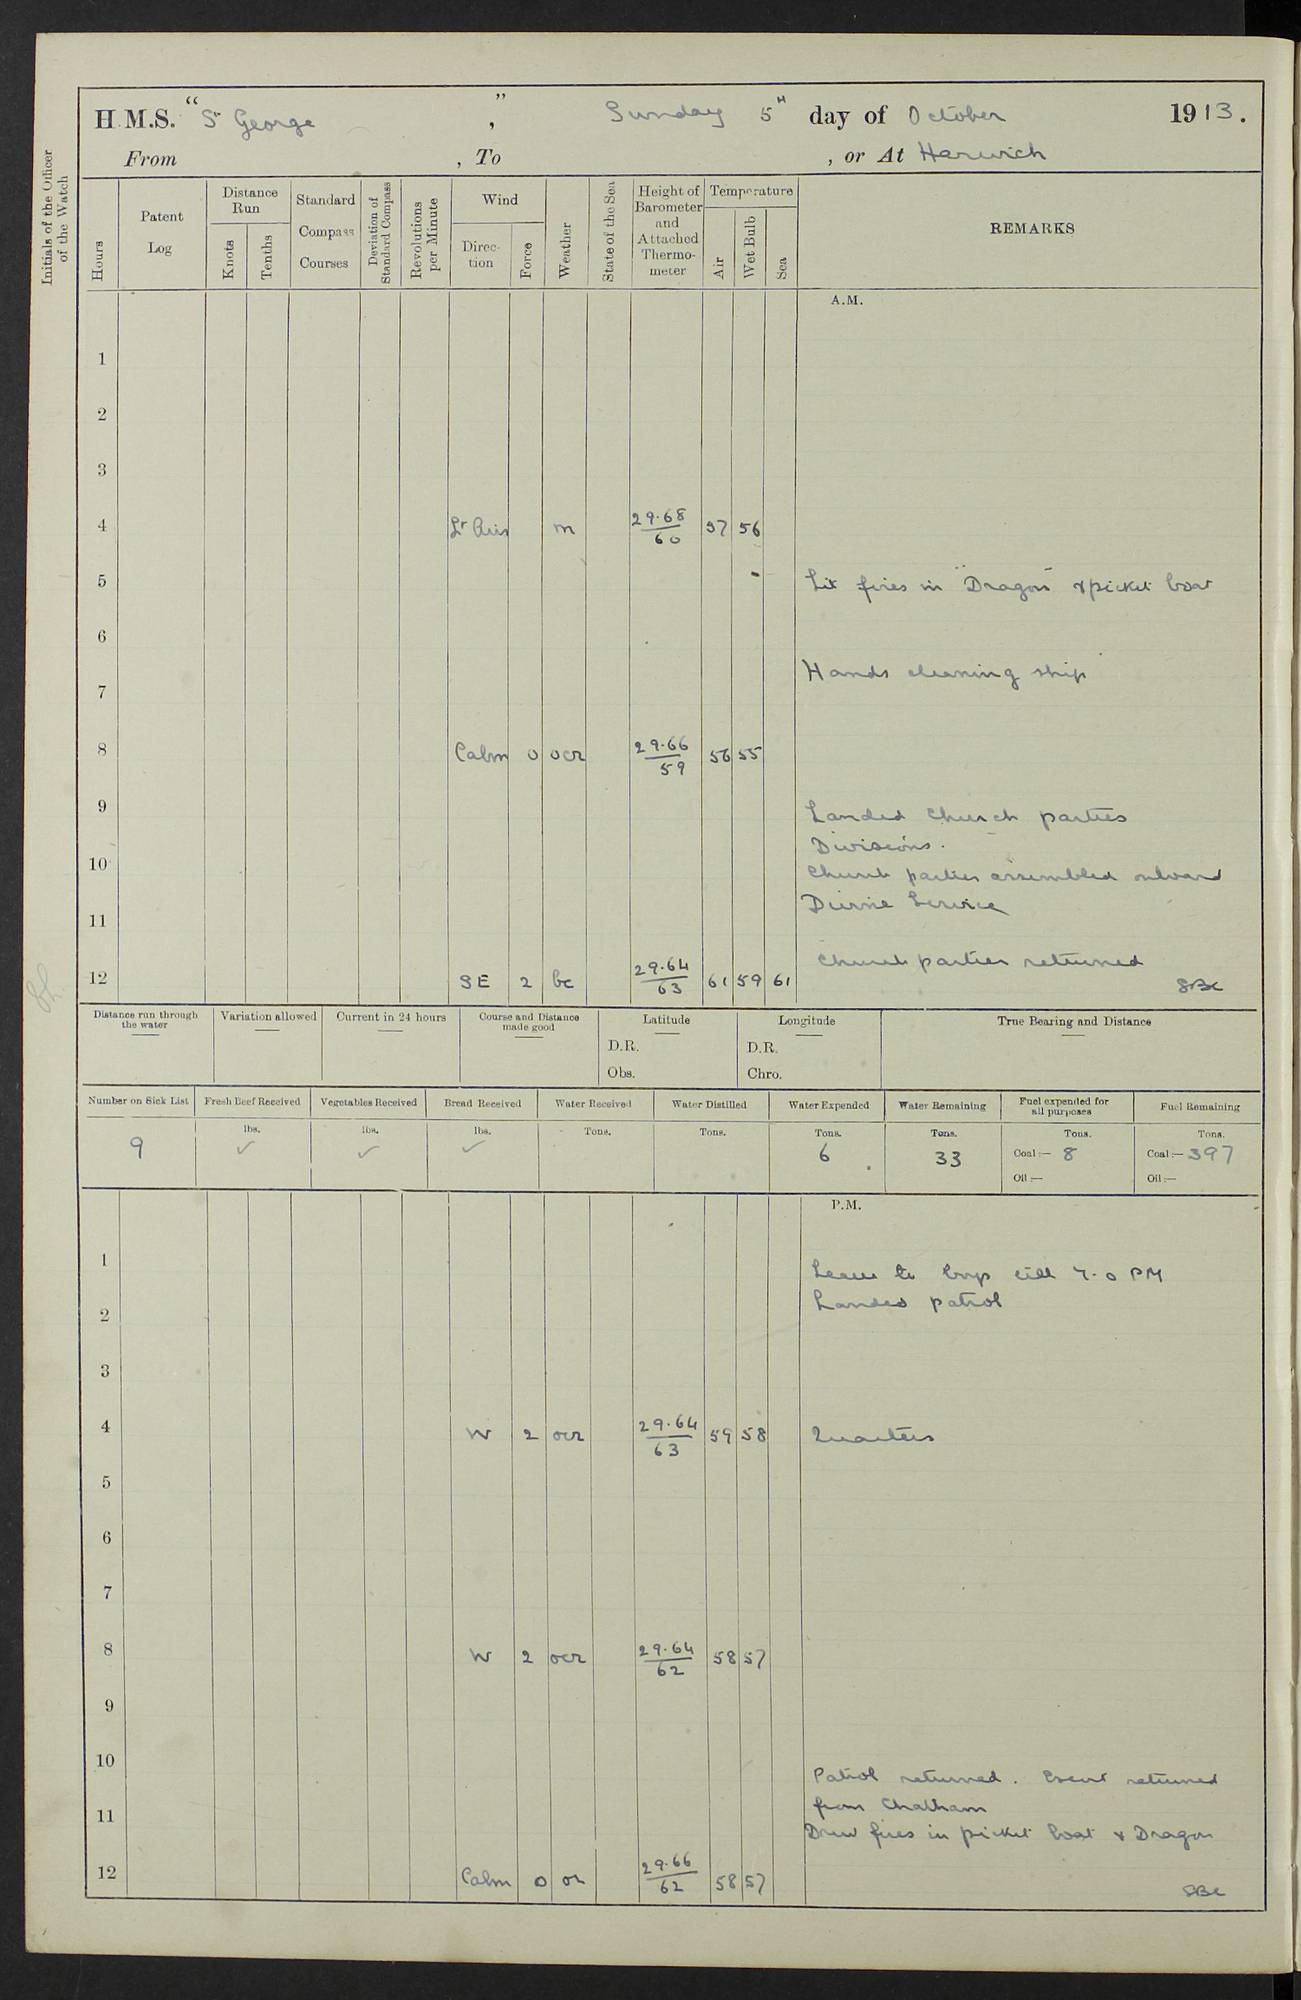 H.M.S. "St George", Sunday 5th day of October 1913.
From , To , or At Harwich
Initials of the Officer of the Watch
Hours
Patent Log
Distance Run
Knots
Tenths
Standard Compass Courses
Deviation of Standard Compass
Revolutions per Minute
Wind
Direction
Force
Weather
State of the Sea
Height of Barometer and Attached Thermometer
Temperature
Air
Wet Bulb
Sea
REMARKS
A.M.
1
2
3
4 Lt Airs m 29.68/60 57 56
5 Lit fires in "Dragon" & picket boat
6
Hands cleaning ship
7
8 Calm 0 ocr 29.66/59 56 55
9 Landed Church parties
Divisions.
10 Church parties assembled onboard
Divine Service
11
Church parties returned
12 SE 2 bc 29.64/63 61 59 61
Distance run through the water
Variation allowed
Current in 24 hours
Course and Distance made good
Latitude
D.R.
Obs.
Longitude
D.R.
Chro.
True Bearing and Distance
Number on Sick List
9
Fresh Beef Received
lbs. ✓
Vegetables Received
lbs. ✓
Bread Received
lbs. ✓
Water Received
Tons.
Water Distilled
Tons.
Water Expended
Tons.
6
Water Remaining
Tons.
33
Fuel expended for all purposes
Tons.
Coal:— 8
Oil:—
Fuel Remaining
Tons.
Coal:— 397
Oil:—
P.M.
1 Leave to boys till 7.0 PM
2 Landed patrol
3
4 W 2 ocr 29.64/63 59 58 Quarters
5
6
7
8 W 2 ocr 29.64/62 58 57
9
10 Patrol returned. Escort returned
11 from Chatham
Drew fires in picket boat & Dragon
12 Calm 0 or 29.66/62 58 57